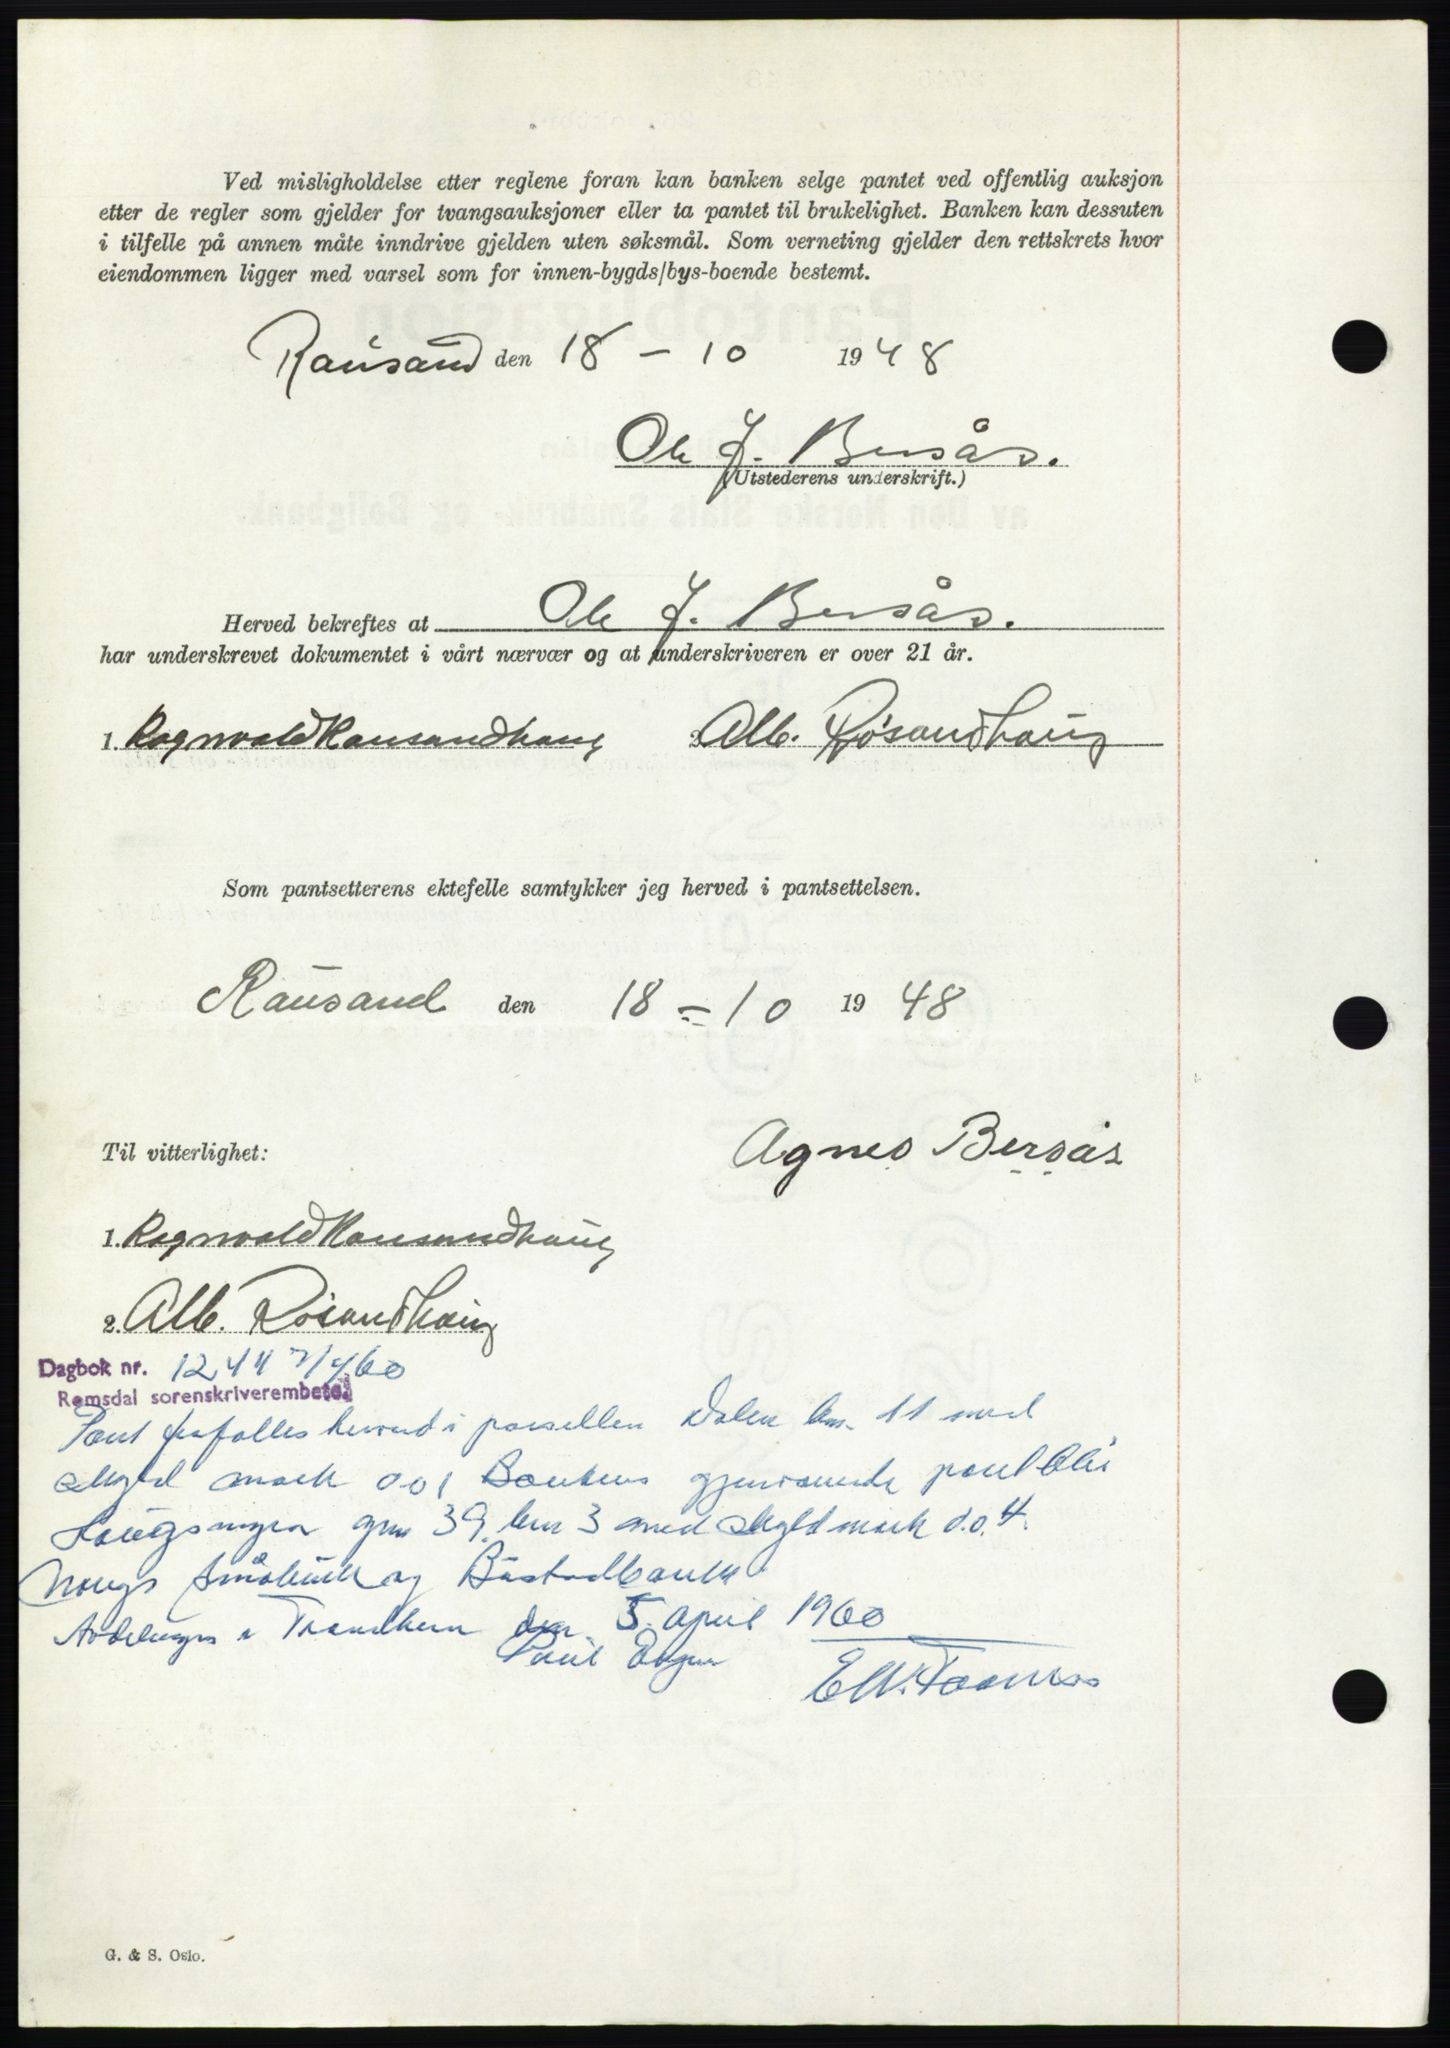 Ved misligholdelse etter reglene foran kan banken selge pantet ved offentlig auksjon
etter de regler som gjelder for tvangsauksjoner eller ta pantet til brukelighet. Banken kan dessuten
i tilfelle på annen måte inndrive gjelden uten søksmål. Som verneting gjelder den rettskrets hvor
eiendommen ligger med varsel som for innen-bygds/bys-boende bestemt.
Rausand den 18 - 10 1948
Ole J. Bersås.
(Utstederens underskrift.)
Herved bekreftes at Ole J. Bersås.
har underskrevet dokumentet i vårt nærvær og at underskriveren er over 21 år.
1. Ragnvald Rausandhaug 2. Alb. Røsandhaug
Som pantsetterens ektefelle samtykker jeg herved i pantsettelsen.
Rausand den 18 - 10 1948
Til vitterlighet: Agnes Bersås
1. Ragnvald Rausandhaug
2. Alb. Røsandhaug
Dagbok nr. 1244 7/4 60
Romsdal sorenskriverembete
Pant frafalles herved i parsellen Dalen bnr. 11 med
skyld mark 0.01 Bankens gjenværende pant blir
Haugsmyra gnr 39 bnr 3 med skyld mark 0.04.
Norges Småbruk og Bustadbank
Avdelingen i Trondheim den 5. April 1960
Paul